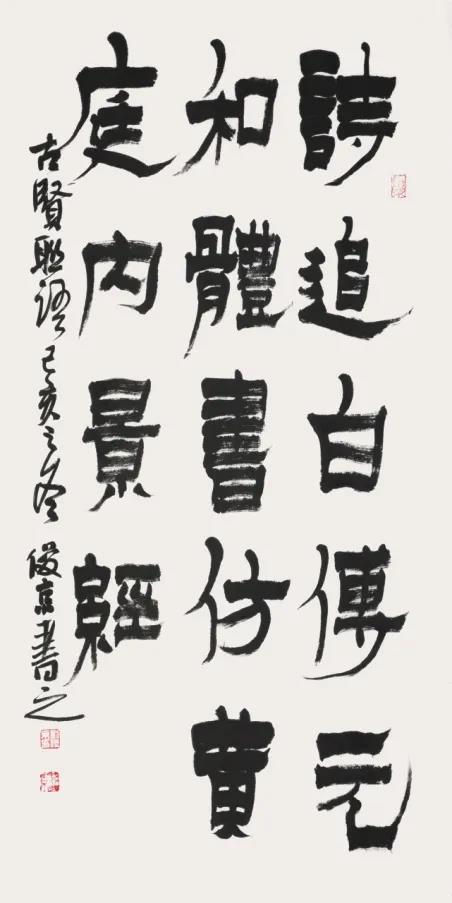 詩追白傅元
和體書仿黄
庭内景經
古賢聯語己亥之冬俊京書之